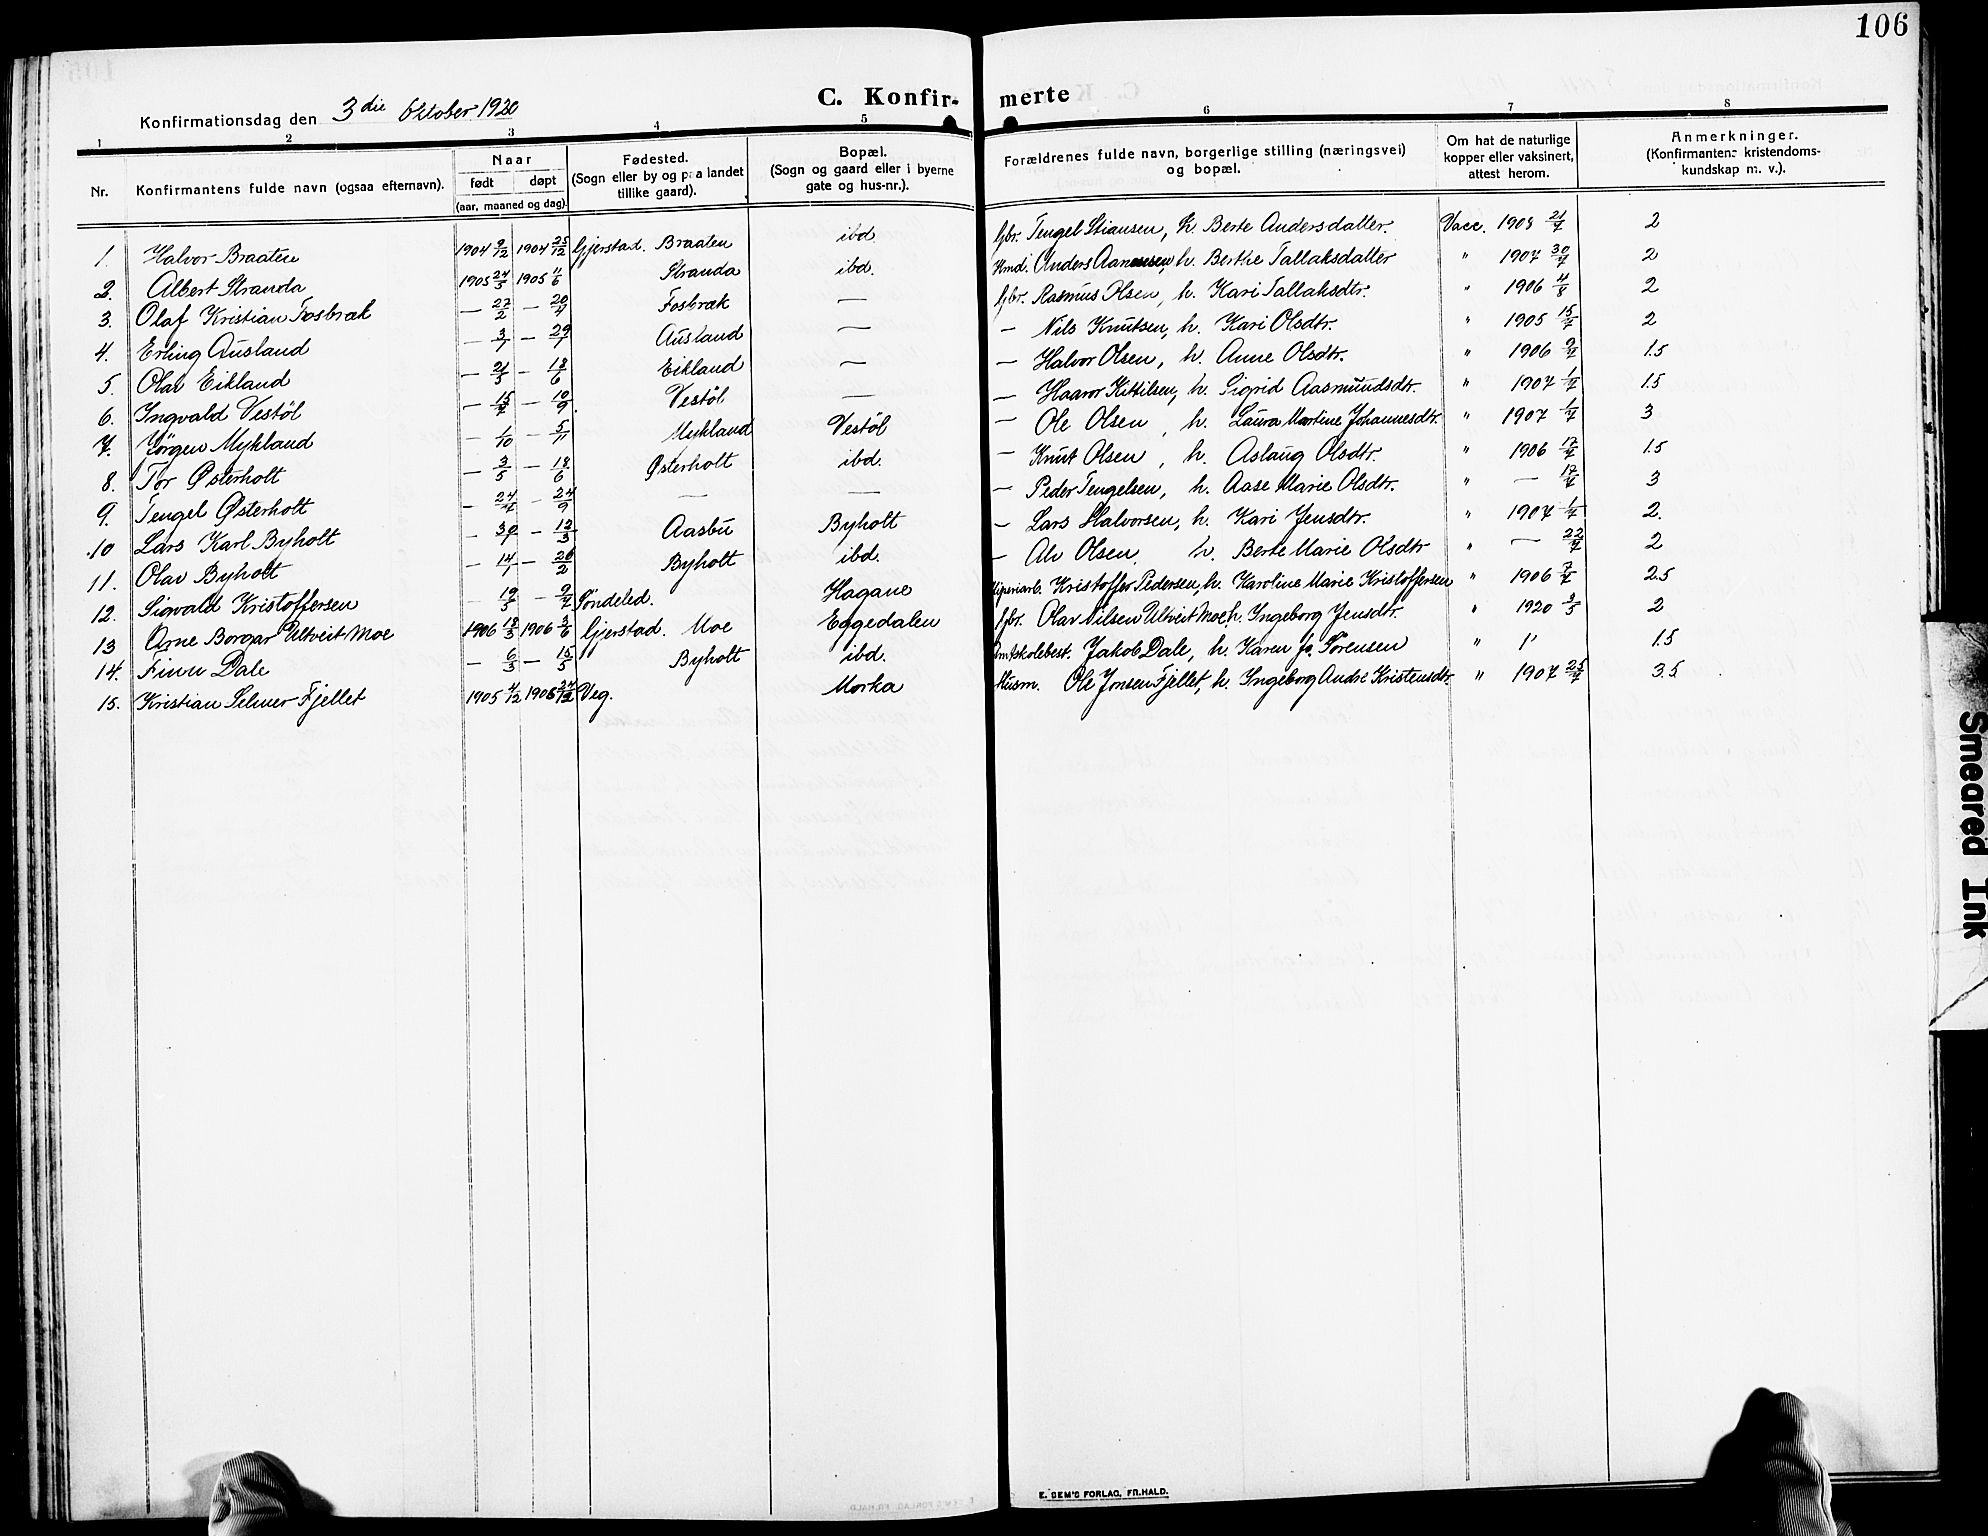 106
Konfirmationsdag den 3die Oktober 1920
C. Konfir- merte
1 2 3 4 5 6 7 8
Nr.
Konfirmantens fulde navn (ogsaa efternavn).
Naar
født døpt
(aar, maaned og dag).
Fødested.
(Sogn eller by og paa landet
tillike gaard).
Bopæl.
(Sogn og gaard eller i byerne
gate og hus-nr.).
Forældrenes fulde navn, borgerlige stilling (næringsvei)
og bopæl.
Om hat de naturlige
kopper eller vaksinert,
attest herom.
Anmerkninger.
(Konfirmantens kristendoms-
kundskap m. v.).
1. Halvor Braaten 1904 9/12 1904 25/12 Gjerstad. Braaten ibd. Gbr. Tengel Stiansen, h. Berte Andersdatter. Vacc. 1908 21/7 2
2. Albert Stranda 1905 24/5 1905 11/6 Stranda ibd. Anders Aanensen, h. Berthe Tallaksdatter " 1907 30/7 2
3. Olaf Kristian Fosbræk — 27/2 — 20/4 Fosbræk — Gbr. Rasmus Olsen, h. Kari Tallaksdtr. " 1906 4/8 2
4. Erling Ausland — 3/1 — 29/1 Ausland — — Nils Knutsen, h. Kari Olsdtr. " 1905 15/7 2
5. Olav Eikland — 21/5 — 18/6 Eikland — — Halvor Olsen, h. Anne Olsdtr. " 1906 9/7 1.5
6. Ingvald Vestöl — 15/7 — 10/9 Vestöl — — Haavor Kittilsen, h. Sigrid Aasmundsdtr. " 1907 1/7 1.5
7. Jørgen Mykland — 1/10 — 5/11 Mykland Vestöl — Ole Olsen, h. Laura Martine Johannesdtr. " 1907 1/7 3
8. Tor Østerholt — 3/5 — 18/6 Østerholt ibd. — Knut Olsen, h. Aslaug Olsdtr. " 1906 17/7 1.5
9. Tengel Østerholt — 24/7 — 24/9 — — — Peder Tengelsen, h. Aase Marie Olsdtr. " — 17/7 3
10 Lars Karl Byholt — 30/1 — 12/3 Aasbu Byholt — Lars Halvorsen, h. Kari Jensdtr. " 1907 1/7 2.
11. Olav Byholt — 14/1 — 26/2 Byholt ibd. — Alv Olsen, h. Berte Marie Olsdtr " — 22/7 2
12. Sigvald Kristoffersen — 19/5 — 9/7 Söndeled. Hagane Kristoffer Pedersen, h. Karoline Marie Kristoffersen " 1906 7/7 2.5
13 Arne Borgar Ultveit Moe 1906 18/3 1906 3/6 Gjerstad. Moe Eggedalen Gbr. Olav Nilsen Ultveit Moe, h. Ingeborg Jensdtr. " 1920 3/5 2
14. Finn Dale — 6/3 — 15/5 Byholt ibd. Amtskolebest. Jakob Dale, h. Karen Jo. Sørensen " " 1.5
15. Kristian Selmer Fjellet 1905 4/12 1905 24/12 Veg. Morka Husm. Ole Jonsen Fjellet, h. Ingeborg Andre Kristensdtr. " 1907 25/7 3.5
Smeared Ink
E. SEM'S FORLAG, FR.HALD.